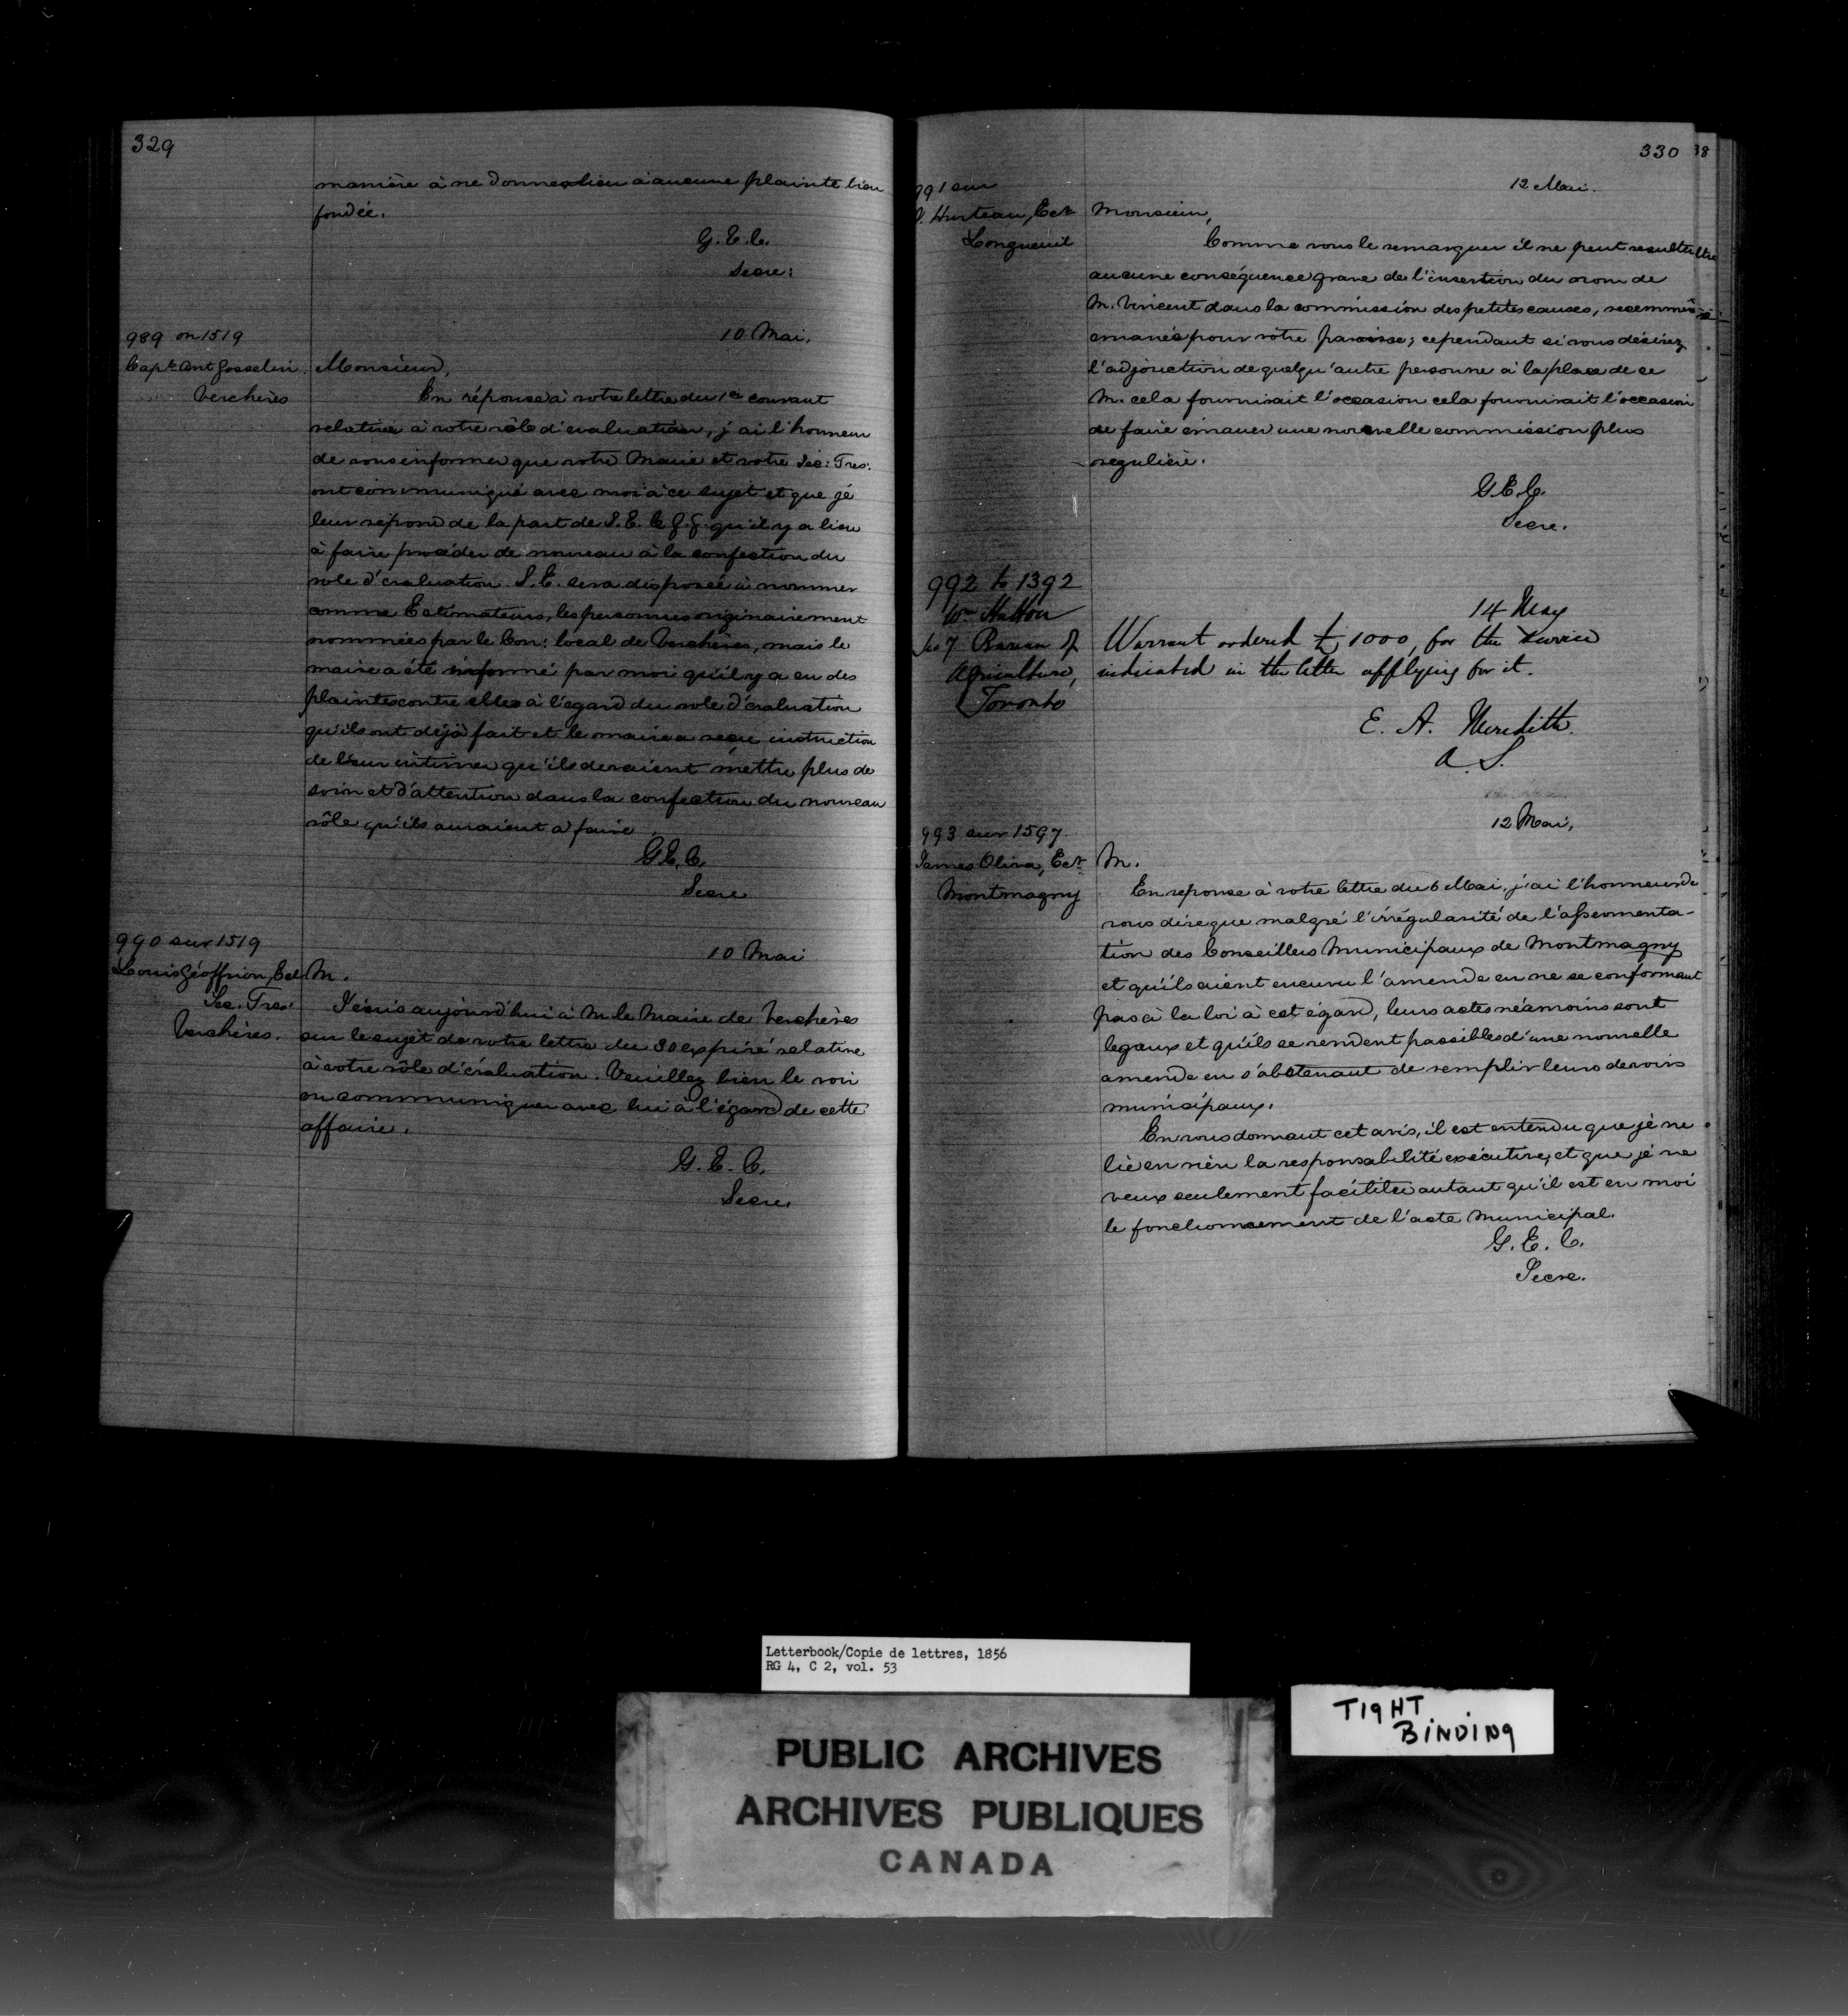 329
manière à ne donner lieu à aucune plainte bien
fondée.
G. E. C.
Secre:
989 on 1519
Capt. Ant Gosselin
Verchères
10 Mai,
Monsieur,
En réponse à votre lettre du 1er courant
relative à votre rôle d'évaluation, j'ai l'honneur
de vous informer que votre Maire et votre Sec: Tres:
ont communiqué avec moi à ce sujet et que je
leur répond de la part de S. E. le G. G. qu'il y a lieu
à faire procéder de nouveau à la confection du
role d'évaluation. S. E. sera disposée à nommer
comme Estimateurs, les personnes originairement
nommées par le Con: local de Verchères, mais le
maire a été informé par moi qu'il y a eu des
plaintes contre elles à l'égard du role d'évaluation
qu'ils ont déjà fait et le maire a reçu instruction
de leur intimer qu'ils devraient mettre plus de
soin et d'attention dans la confection du nouveau
rôle qu'ils auraient a faire
G. E. C.
Secre
990 sur 1519
Louis Géoffrion, Ecr
Sec. Tres.
Verchères.
10 Mai
M.
J'écris aujourd'hui à M. le Maire de Verchères
sur le sujet de votre lettre du 30 expiré relative
à votre rôle d'évaluation. Veuillez bien le voir
ou communiquer avec lui à l'égard de cette
affaire.
G. E. C.
Secre.
330
38
991 sur
Hurteau, Ecr
Longueuil
12 Mai.
Monsieur,
Comme vous le remarquer il ne peut resulter
aucune conséquence grave de l'insertion du nom de
M. Vincent dans la commission des petites causes, recemment
émanée pour votre paroisse; cependant si vous désirez
l'adjonction de quelqu'autre personne à la place de ce
M. cela fournirait l'occasion cela fournirait l'occasion
de faire émaner une nouvelle commission plus
regulière.
G. E. C.
Secre.
992 to 1392
Wm Hutton
Sec7 Bureau of
Agriculture,
Toronto
14 May
Warrant ordered £1000, for the service
indicated in the letter applying for it.
E. A. Meredith
A. S.
993 sur 1597.
James Oliva, Ecr
Montmagny
12 Mai,
M.
En reponse à votre lettre du 6 Mai, j'ai l'honneur de
vous dire que malgré l'irrégularité de l'assermenta-
tion des Conseillers Municipaux de Montmagny
et qu'ils aient encouru l'amende en ne se conformant
pas à la loi à cet égard, leurs actes néamoins sont
legaux et qu'ils se rendent passibles d'une nouvelle
amende en s'abstenant de remplir leurs devoirs
municipaux.
En vous donnant cet avis, il est entendu que je ne
lie en rien la responsabilité exécutive, et que je ne
veux seulement faciliter autant qu'il est en moi
le fonctionnement de l'acte Municipal.
G. E. C.
Secre.
Letterbook/Copie de lettres, 1856
RG 4, C 2, vol. 53
TIGHT
BINDING
PUBLIC ARCHIVES
ARCHIVES PUBLIQUES
CANADA